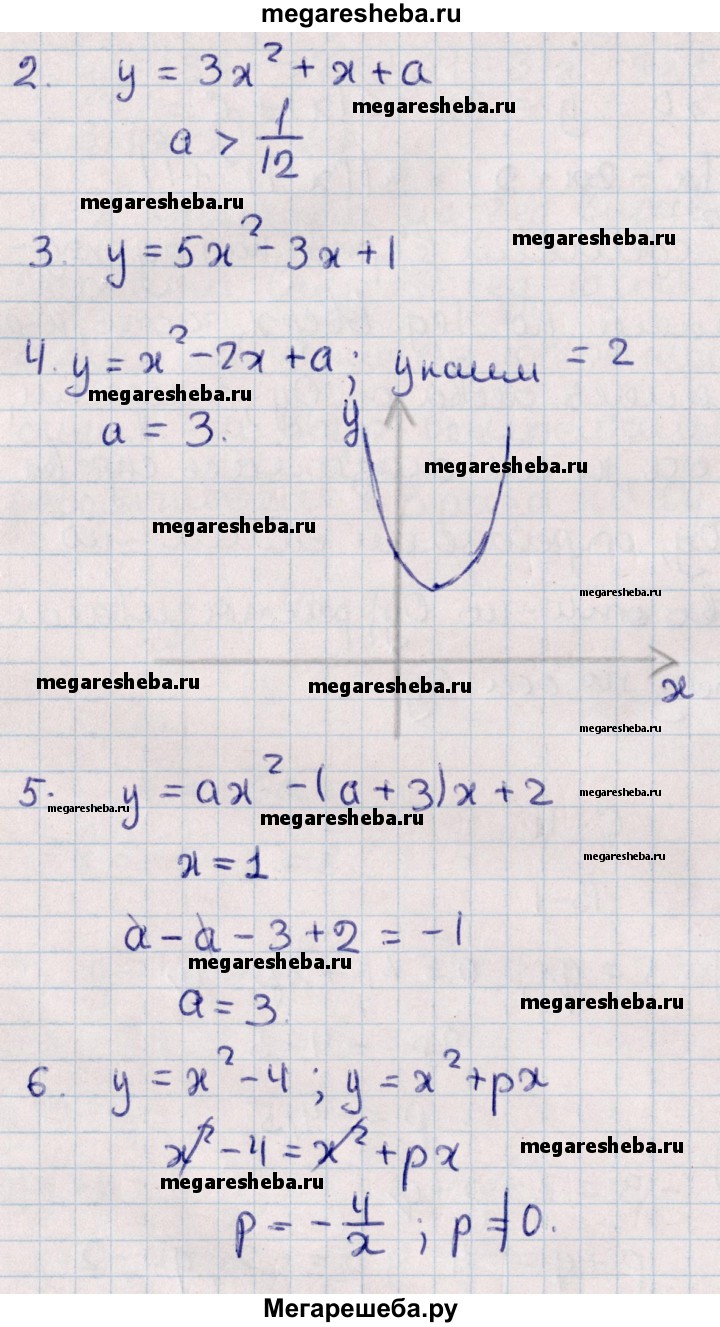 megaresheba.ru
2. y = 3x² + x + a
megaresheba.ru
a > 1/12
megaresheba.ru
megaresheba.ru
3. y = 5x² - 3x + 1
4. y = x² - 2x + a; y наим = 2
megaresheba.ru
a = 3.
y
megaresheba.ru
megaresheba.ru
megaresheba.ru
megaresheba.ru
megaresheba.ru
x
megaresheba.ru
5. y = ax² - (a + 3)x + 2
megaresheba.ru
megaresheba.ru
megaresheba.ru
x = 1
megaresheba.ru
a - a - 3 + 2 = -1
megaresheba.ru
a = 3.
megaresheba.ru
6. y = x² - 4; y = x² + px
x² - 4 = x² + px
megaresheba.ru
megaresheba.ru
p = - 4/x ; p ≠ 0.
Мегарешеба.ру